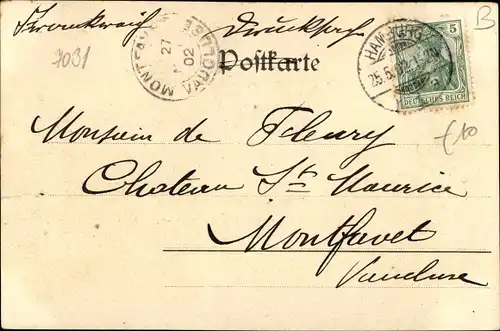 Frankreich Drucksache
7031
MONTFAVET VAUCLUSE
27
02
Postkarte
HAMBURG
25.5.02
5
DEUTSCHES REICH
B
€10
Monsieur de Fleury
Chateau St Maurice
Montfavet
Vaucluse